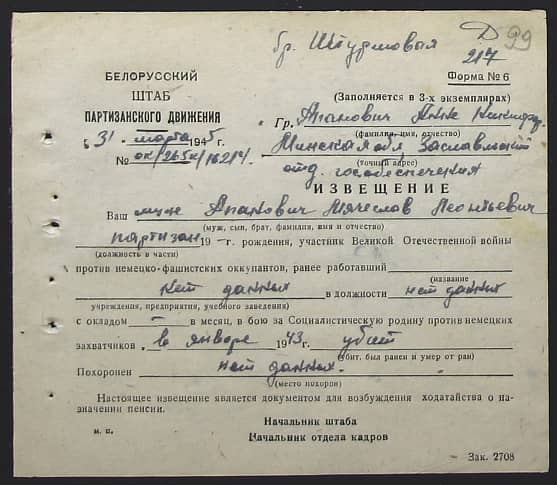 бр. Штурмовая
Д 99
217
БЕЛОРУССКИЙ
ШТАБ
ПАРТИЗАНСКОГО ДВИЖЕНИЯ
„31" марта 1945 г.
№ ок/265к/16214
Форма № 6
(Заполняется в 3-х экземплярах)
Гр. Апанович Анне
(фамилия, имя, отчество)
Минская обл, Заславльский
(точный адрес)
отд. гособеспечения
ИЗВЕЩЕНИЕ
Ваш муж Апанович Мячеслав Леонтьевич
(муж, сын, брат, фамилия, имя и отчество)
партизан 19 — г. рождения, участник Великой Отечественной войны
(должность в части)
против немецко-фашистских оккупантов, ранее работавший
(название
нет данных в должности нет данных
учреждения, предприятия, учебного заведения)
с окладом — в месяц, в бою за Социалистическую родину против немецких
захватчиков „ в январе 1943 г. убит
(убит, был ранен и умер от ран)
Похоронен нет данных.
(место похорон)
Настоящее извещение является документом для возбуждения ходатайства о на-
значении пенсии.
Начальник штаба
м. п.
Начальник отдела кадров
Зак. 2708